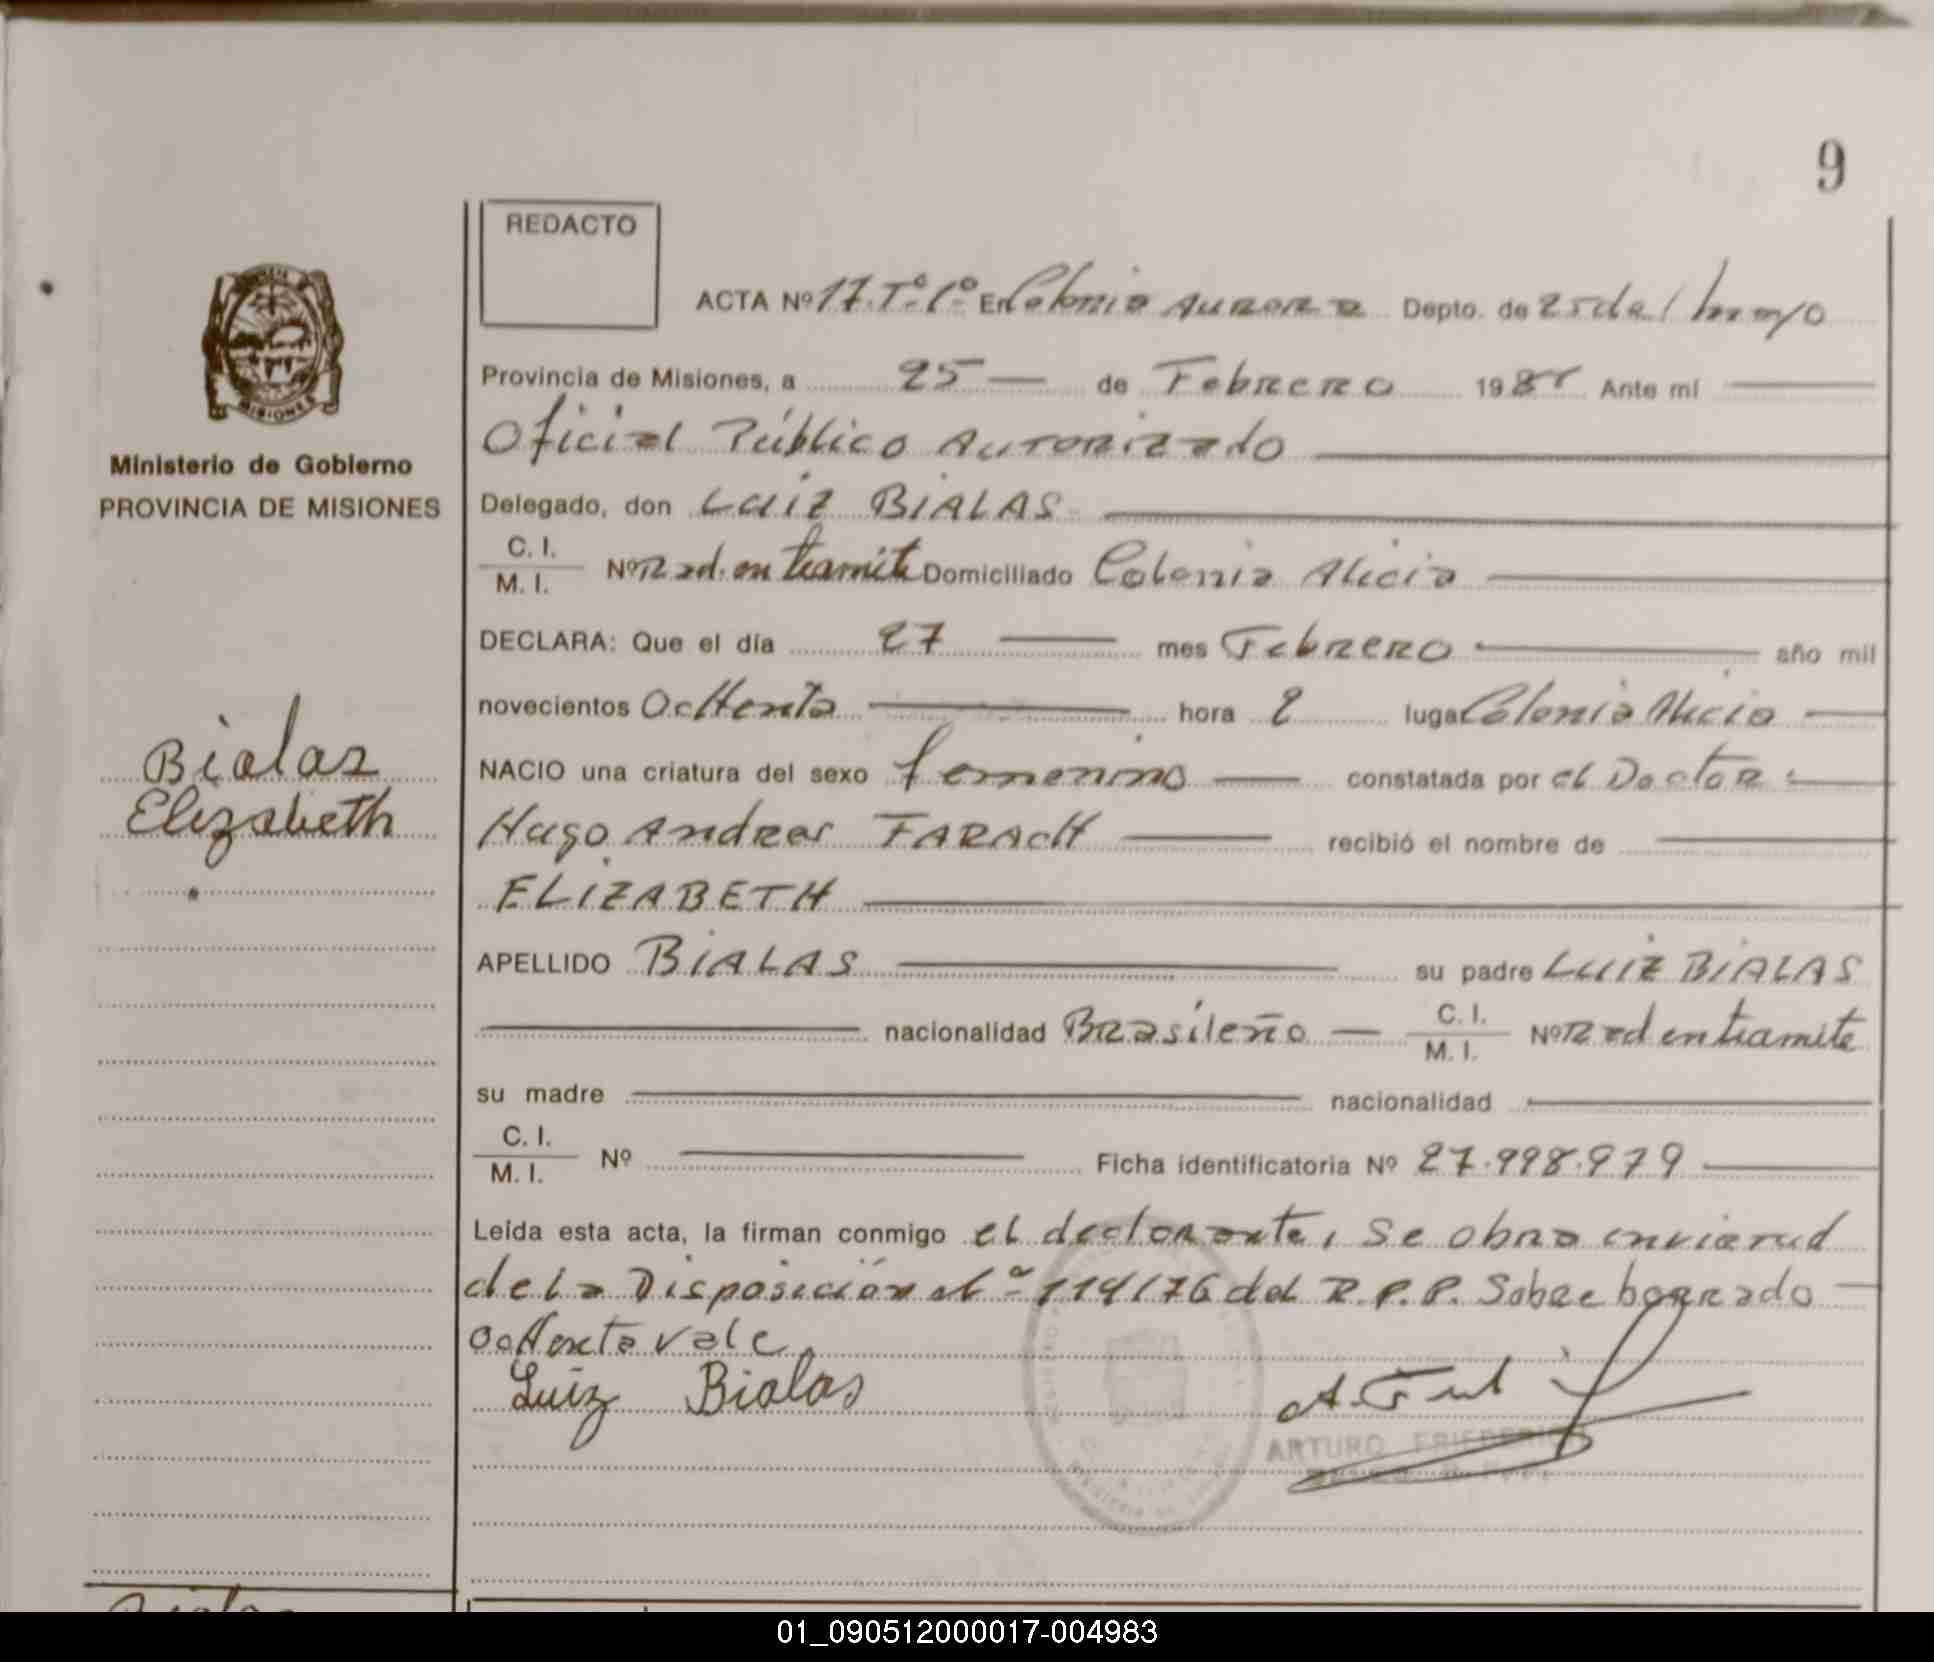 9
REDACTO
ACTA Nº 17. Tº 1º En Colonia Aurora Depto. de 25 de Mayo
Provincia de Misiones, a 25 — de Febrero 198 Ante mí
Oficial Público Autorizado
Ministerio de Gobierno
PROVINCIA DE MISIONES
Delegado, don LUIZ BIALAS
C. I.
M. I. Nº Rad. en tramite Domiciliado Colonia Alicia
DECLARA: Que el día 27 — mes Febrero — año mil
novecientos OcHenta — hora 2 lugar Colonia Alicia —
Bialas
Elizabeth
NACIO una criatura del sexo femenino — constatada por el Doctor
Hugo Andres FARACH — recibió el nombre de
ELIZABETH
APELLIDO BIALAS — su padre LUIZ BIALAS
nacionalidad Brasileño — C. I.
M. I. Nº Rad en tramite
su madre — nacionalidad —
C. I.
M. I. Nº — Ficha identificatoria Nº 27.998.979 —
Leída esta acta, la firman conmigo el declarante, Se obra en virtud
de la Disposición Nº 114/76 del R.P.P. Sobre borrado —
ocHenta vale
Luiz Bialas
ARTURO FRIEDERICH
MISIONES
01_090512000017-004983